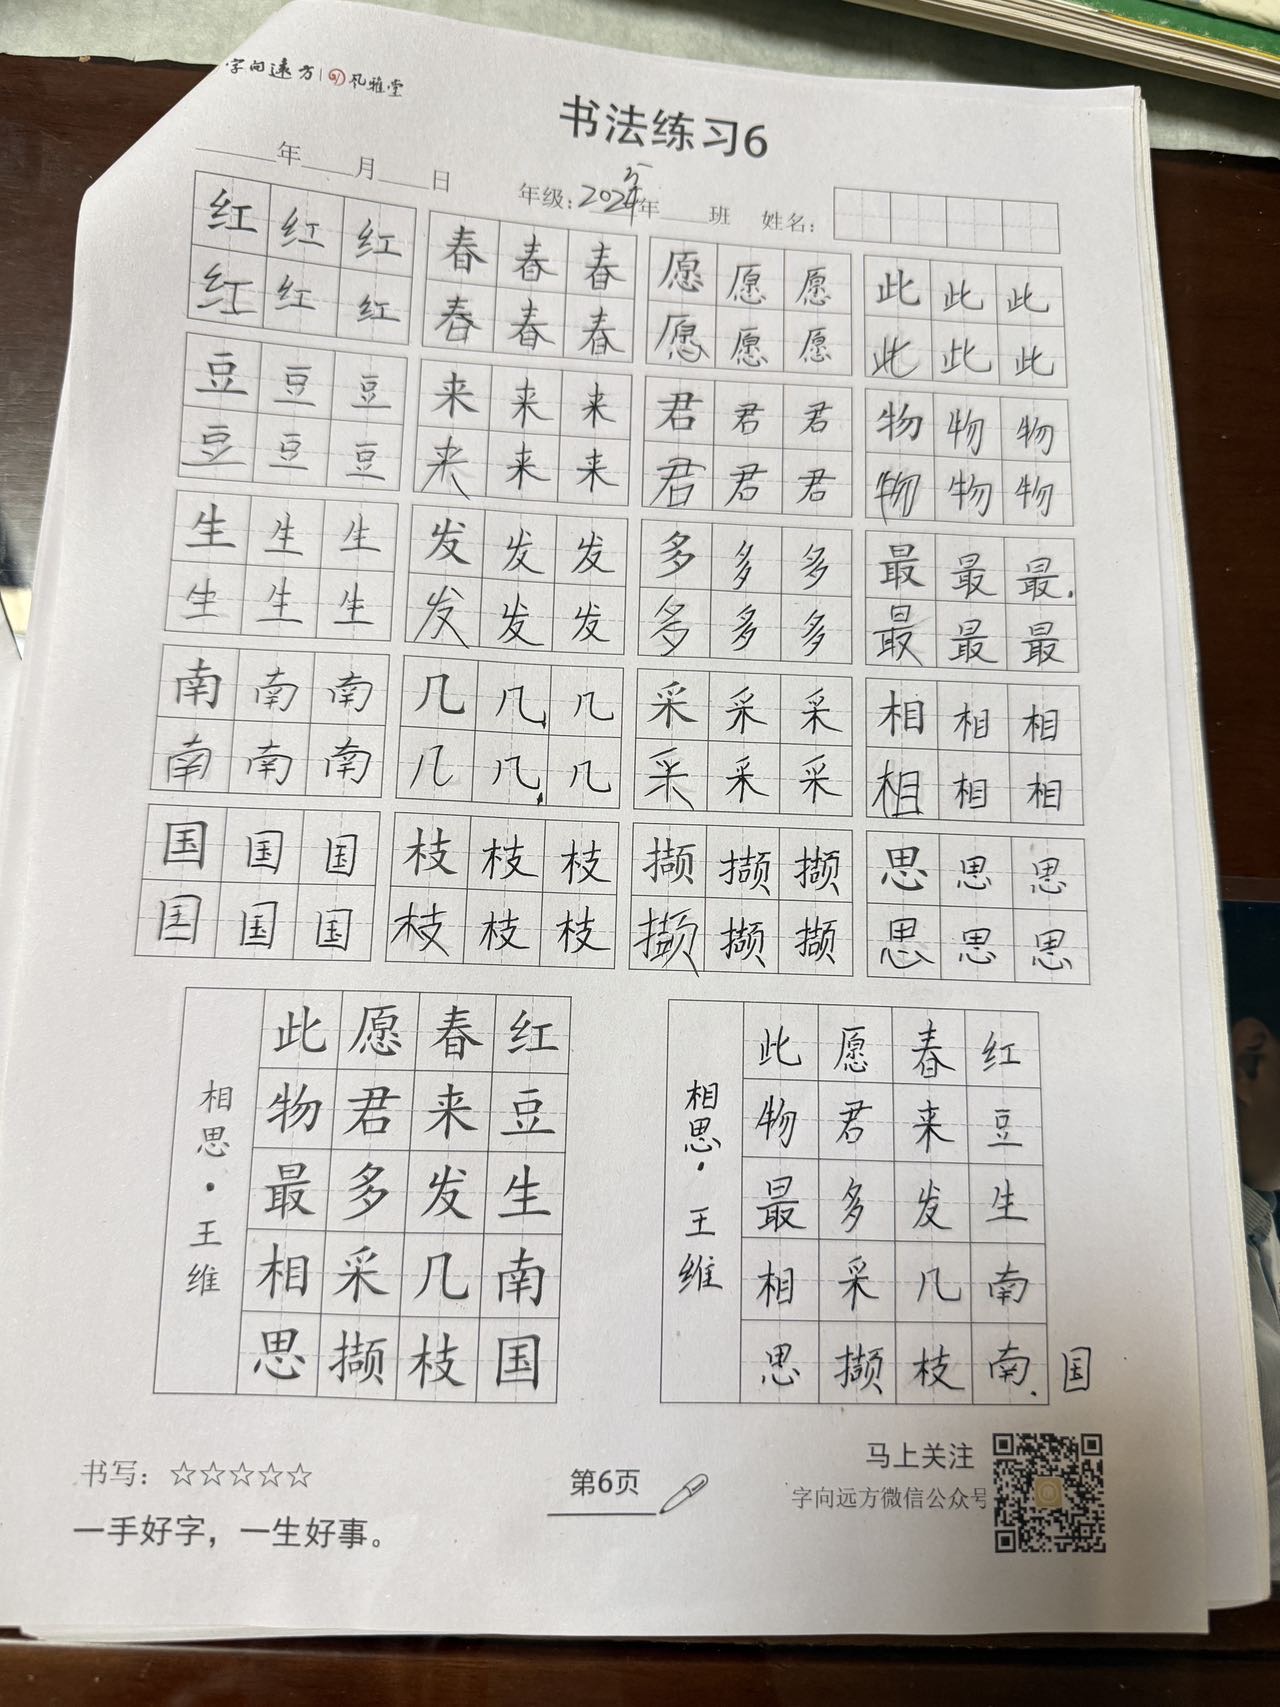 字向远方 | 风雅堂
书法练习6
年 月 日 年级：2024年 班 姓名：
红红红 春春春 愿愿愿 此此此
红红红 春春春 愿愿愿 此此此
豆豆豆 来来来 君君君 物物物
豆豆豆 来来来 君君君 物物物
生生生 发发发 多多多 最最最
生生生 发发发 多多多 最最最
南南南 几几几 采采采 相相相
南南南 几几几 采采采 相相相
国国国 枝枝枝 撷撷撷 思思思
国国国 枝枝枝 撷撷撷 思思思
红豆生南国
春来发几枝
愿君多采撷
此物最相思
相思·王维
红豆生南南国
春来发几枝
愿君多采撷
此物最相思
相思·王维
书写：☆☆☆☆☆
一手好字，一生好事。
第6页
马上关注
字向远方微信公众号